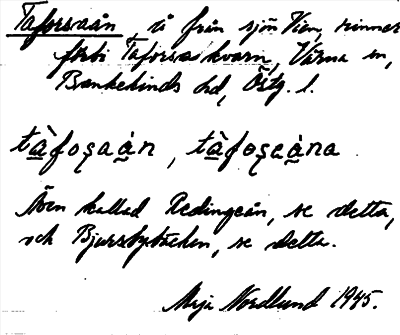 Taforsaån, å från sjön Vien, rinner
förbi Taforsa kvarn, Värna sn,
Bankekinds hd, Östg. l.
tàfoșaån, tàfoșaåna
Även kallad Redingeån, se detta,
och Bjursbybäcken, se detta.
Maja Nordlund 1945.